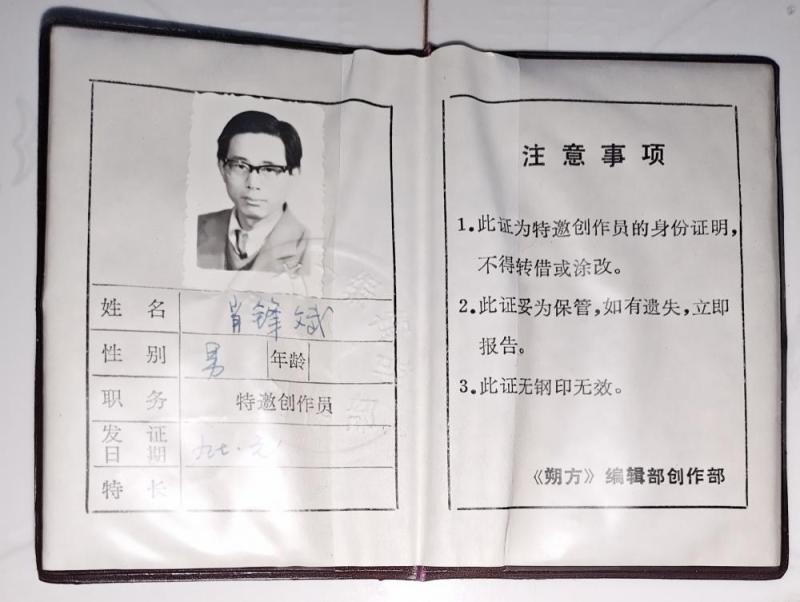 姓名 肖锋斌
性别 男 年龄
职务 特邀创作员
发证日期
特长
注意事项
1.此证为特邀创作员的身份证明，
不得转借或涂改。
2.此证妥为保管，如有遗失，立即
报告。
3.此证无钢印无效。
《朔方》编辑部创作部